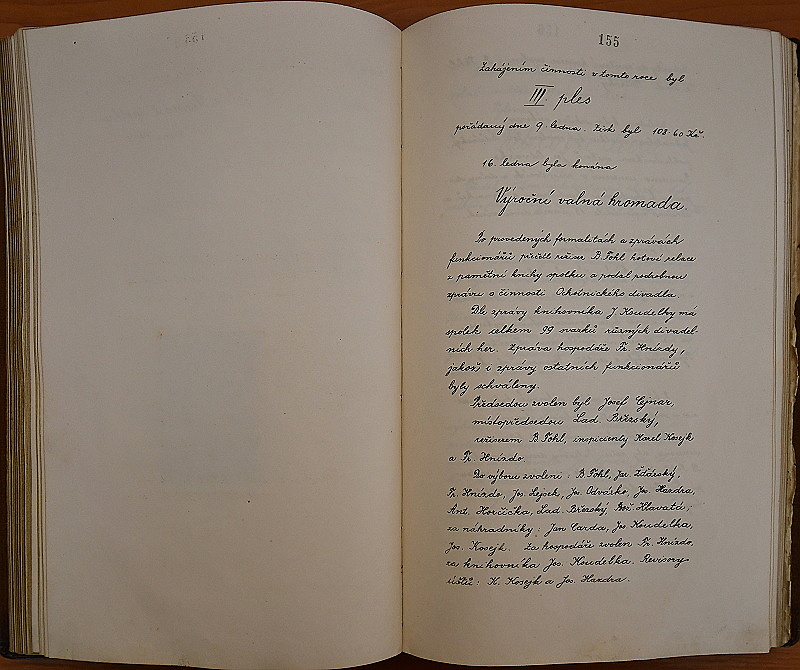 155
Zahájením činnosti v tomto roce byl
III. ples
pořádaný dne 9. ledna. Zisk byl 108.60 Kč.
16. ledna byla konána
Výroční valná hromada.
Po provedených formalitách a zprávách
funkcionářů přečetl režisér B. Pohl hotové relace
z pamětní knihy spolku a podal podrobnou
zprávu o činnosti Ochotnického divadla.
Dle zprávy knihovníka J. Koudelky má
spolek celkem 99 svazků různých divadel-
ních her. Zpráva hospodáře Fr. Hnízdy,
jakož i zprávy ostatních funkcionářů
byly schváleny.
Předsedou zvolen byl Josef Cejnar,
místopředsedou Lad. Březský,
režisérem B. Pohl, inspicienty Karel Kosejk
a Fr. Hnízdo.
Do výboru zvoleni: B. Pohl, Jar. Žďárský,
Fr. Hnízdo, Jos. Lejsek, Jos. Odvárko, Jos. Hazdra,
Ant. Horčička, Lad. Březský, Bož. Hlavatá;
za náhradníky: Jan Čarda, Jos. Koudelka,
Jos. Kosejk. Za hospodáře zvolen Fr. Hnízdo,
za knihovníka Jos. Koudelka. Revisory
účtů: K. Kosejk a Jos. Hazdra.